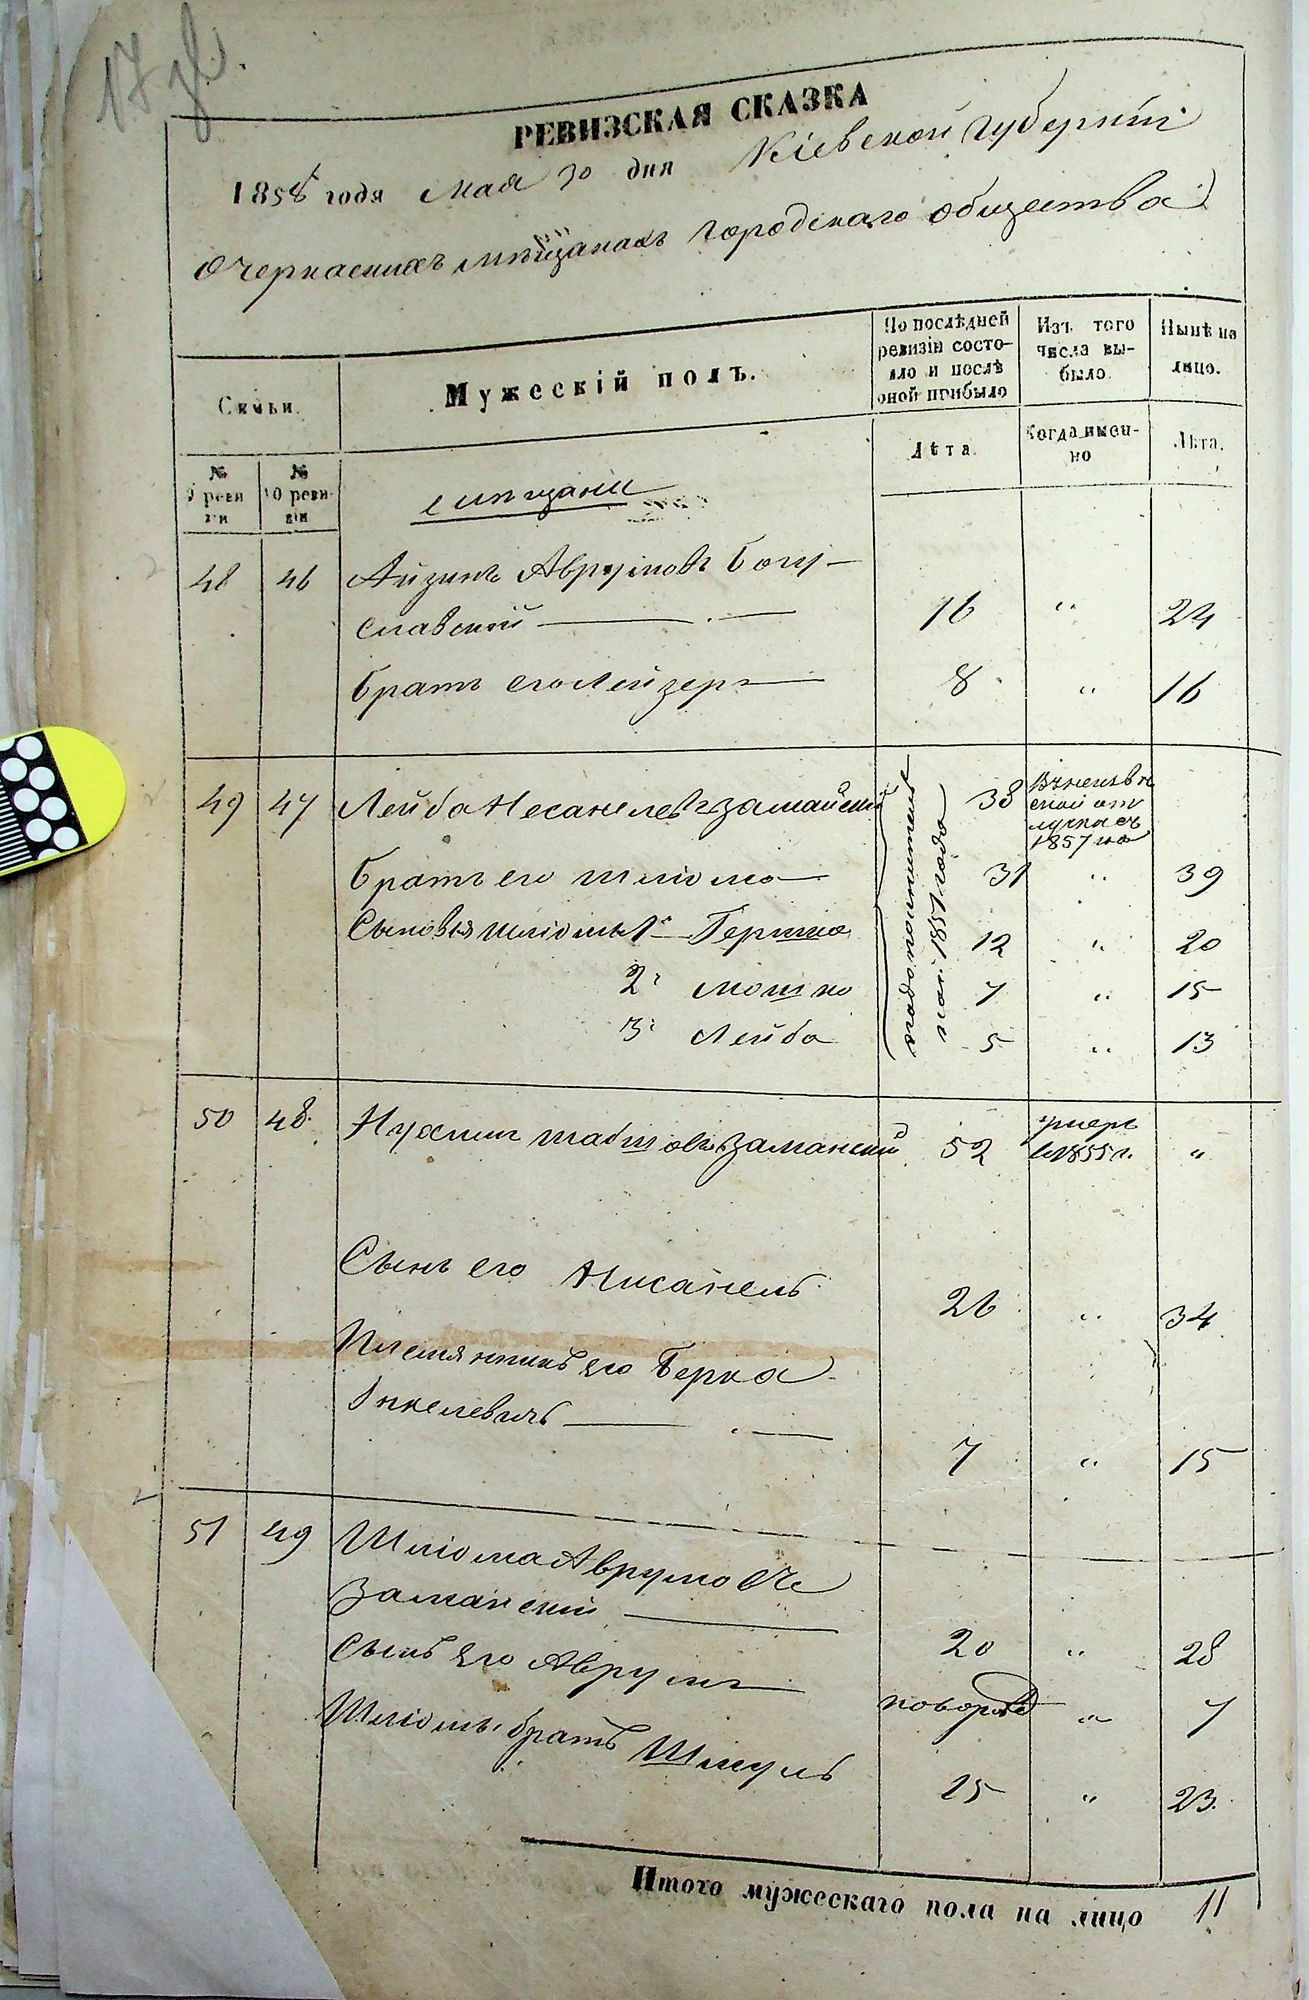 РЕВИЗСКАЯ СКАЗКА
1858 года мая 30 дня Кіевской губерніи
О Черкаскихъ мѣщанахъ городскаго общества
Семьи.
Мужескій полъ.
По послѣдней ревизіи состояло и послѣ оной прибыло
Изъ того числа выбыло.
Нынѣ на лицо.
№ 9 ревизіи
№ 10 ревизіи
Лѣта.
Когда именно
Лѣта.
мѣщане
48 46 Айзикъ Аврумовъ Богу-
славскій 16 " 24
братъ его Лейзеръ 8 " 16
49 47 Лейба Несанелевъ Заманскій 38 Въ неизвѣ
сной от
лучкѣ съ
1857 го
братъ его Шліома 31 " 39
Сыновья Шліомы 1й Гершко 12 " 20
2й Мошко 7 " 15
3й Лейба 5 " 13
50 48 Нухимъ Шабшовъ Заманскій 52 умеръ
въ 1855 г. "
Сынъ его Нисанель 26 " 34
Племянникъ его Берко
7 " 15
51 49 Шліома Аврумовъ
Заманскій 20 " 28
Сынъ его Аврумъ новорожд " 7
Шліомы братъ Шмуль 15 " 23
Итого мужескаго пола на лицо 11